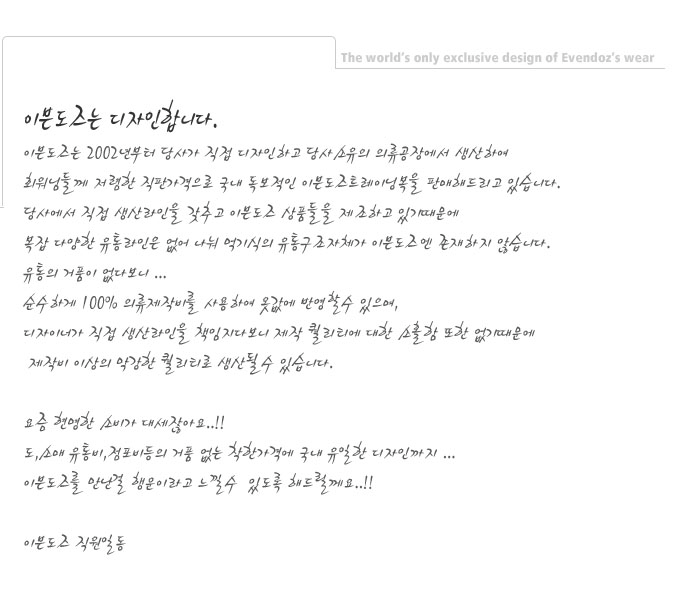 The world's only exclusive design of Evendoz's wear
이븐도즈는 디자인합니다.
이븐도즈는 2002년부터 당사가 직접 디자인하고 당사소유의 의류공장에서 생산하여
회원님들께 저렴한 직판가격으로 국내 독보적인 이븐도즈트레이닝복을 판매해드리고 있습니다.
당사에서 직접 생산라인을 갖추고 이븐도즈 상품들을 제조하고 있기때문에
복잡 다양한 유통라인은 없어 나눠 먹기식의 유통구조자체가 이븐도즈엔 존재하지 않습니다.
유통의 거품이 없다보니 ...
순수하게 100% 의류제작비를 사용하여 옷값에 반영할수 있으며,
디자이너가 직접 생산라인을 책임지다보니 제작 퀄리티에 대한 소홀함 또한 없기때문에
제작비 이상의 막강한 퀄리티로 생산될수 있습니다.
요즘 현명한 소비가 대세잖아요..!!
도,소매 유통비,점포비등의 거품 없는 착한가격에 국내 유일한 디자인까지 ...
이븐도즈를 만난걸 행운이라고 느낄수 있도록 해드릴께요..!!
이븐도즈 직원일동